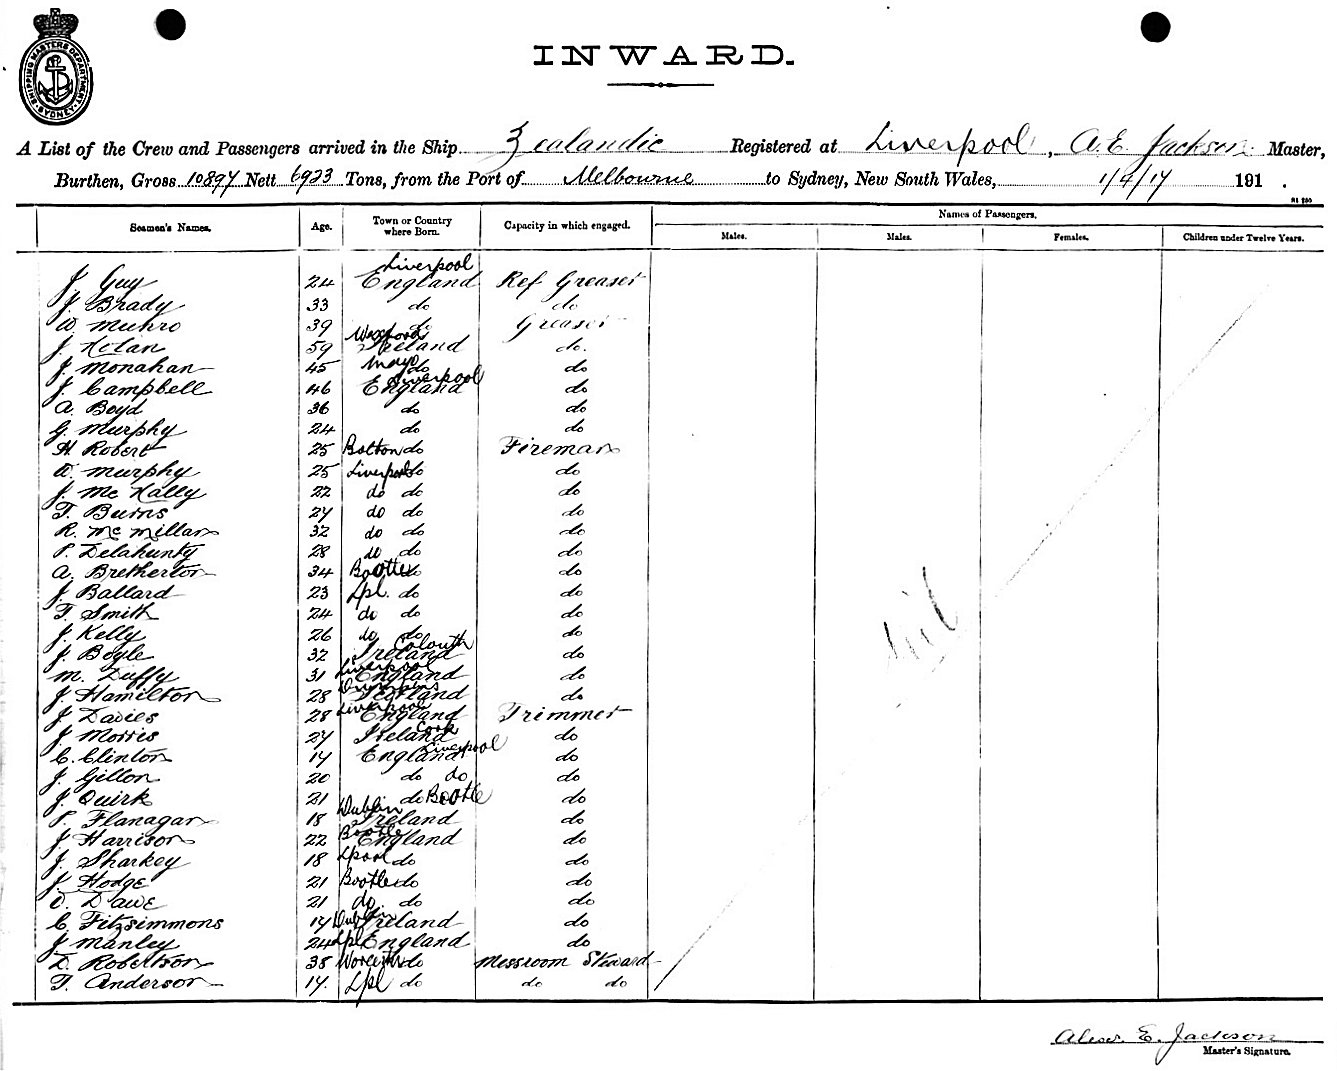 SHIPPING MASTERS DEPARTMENT SYDNEY
INWARD.
A List of the Crew and Passengers arrived in the Ship Zealandic Registered at Liverpool, A. E. Jackson Master,
Burthen, Gross 10897 Nett 6923 Tons, from the Port of Melbourne to Sydney, New South Wales, 1/4/17 191 .
Names of Passengers.
Seamen's Names. Age. Town or Country where Born. Capacity in which engaged. Males. Males. Females. Children under Twelve Years.
J. Guy 24 Liverpool England Ref Greaser
J. Brady 33 do do
Munro 39 do Greaser
J. Nolan 59 Wexford Ireland do.
J. Monahan 45 Mayo do do
J. Campbell 46 Liverpool England do
A. Boyd 36 do do
G. Murphy 24 do do
H. Robert 25 Bolton do Fireman
Murphy 25 Liverpool do do
J. McNally 22 do do do
T. Burns 27 do do do
R. McMillan 32 do do do
P. Delahunty 28 do do do
A. Bretherton 34 Bootle do do
J. Ballard 23 Lpl. do do
T. Smith 24 do do do
J. Kelly 26 do do do
J. Boyle 32 Ireland do
M. Duffy 31 Liverpool England do
J. Hamilton 28 do
J. Davies 28 Liverpool England Trimmer
J. Morris 27 Ireland Cork do
C. Clinton 17 England Liverpool do
J. Gillon 20 do do do
J. Quirk 21 do Bootle do
P. Flanagan 18 Dublin Ireland do
J. Harrison 22 Bootle England do
J. Sharkey 18 Lpool do do
J. Hodge 21 Bootle do do
D. Dawe 21 do. do do
C. Fitzsimmons 17 Dublin Ireland do
J. Manley 24 Lpl England do
D. Robertson 38 do Messroom Steward
T. Anderson 17. Lpl do do do
Nil
Alexr. E. Jackson
Master's Signature.